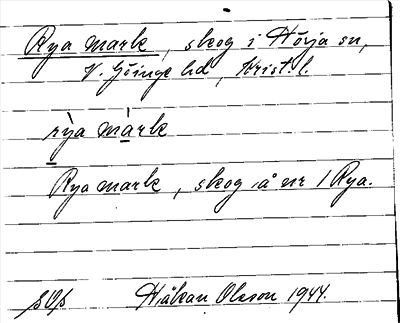 Rya mark, skog i Hörja sn,
V. Göinge hd, Krist. l.
rỳa màrk
Rya mark, skog å nr 1 Rya.
Håkan Olsson 1944.